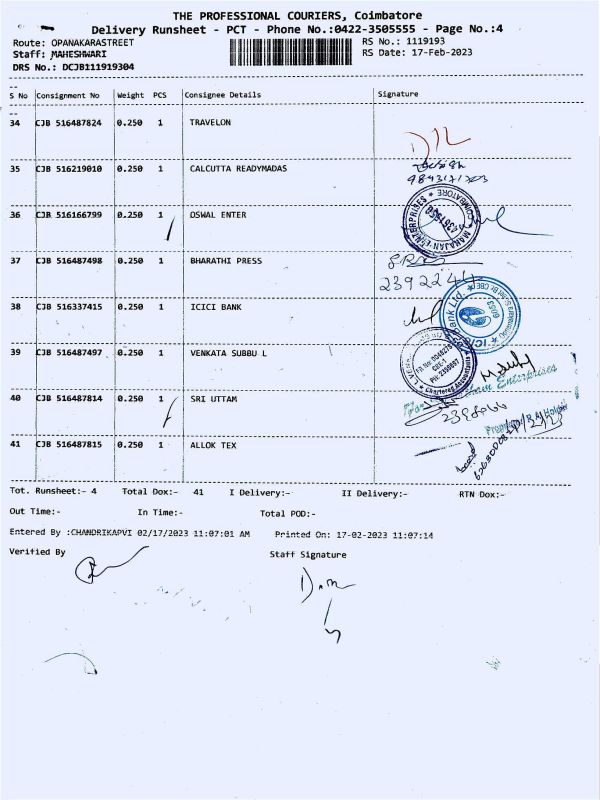 THE PROFESSIONAL COURIERS, Coimbatore
Delivery Runsheet - PCT - Phone No.:0422-3505555 - Page No.:4
Route: OPANAKARASTREET
RS No.: 1119193
Staff: MAHESHWARI
RS Date: 17-Feb-2023
DRS No.: DCJB111919304
S No Consignment No Weight PCS Consignee Details Signature
34 CJB 516487824 0.250 1 TRAVELON
35 CJB 516219010 0.250 1 CALCUTTA READYMADAS
36 CJB 516166799 0.250 1 OSWAL ENTER
37 CJB 516487498 0.250 1 BHARATHI PRESS
38 CJB 516337415 0.250 1 ICICI BANK
39 CJB 516487497 0.250 1 VENKATA SUBBU L
40 CJB 516487814 0.250 1 SRI UTTAM
41 CJB 516487815 0.250 1 ALLOK TEX
MAHAJAN ENTERPRISES
COIMBATORE
Bank Ltd.
6053
Chartered Accountants
Enterprises
Tot. Runsheet:- 4 Total Dox:- 41 I Delivery:- II Delivery:- RTN Dox:-
Out Time:- In Time:- Total POD:-
Entered By :CHANDRIKAPVI 02/17/2023 11:07:01 AM Printed On: 17-02-2023 11:07:14
Verified By
Staff Signature